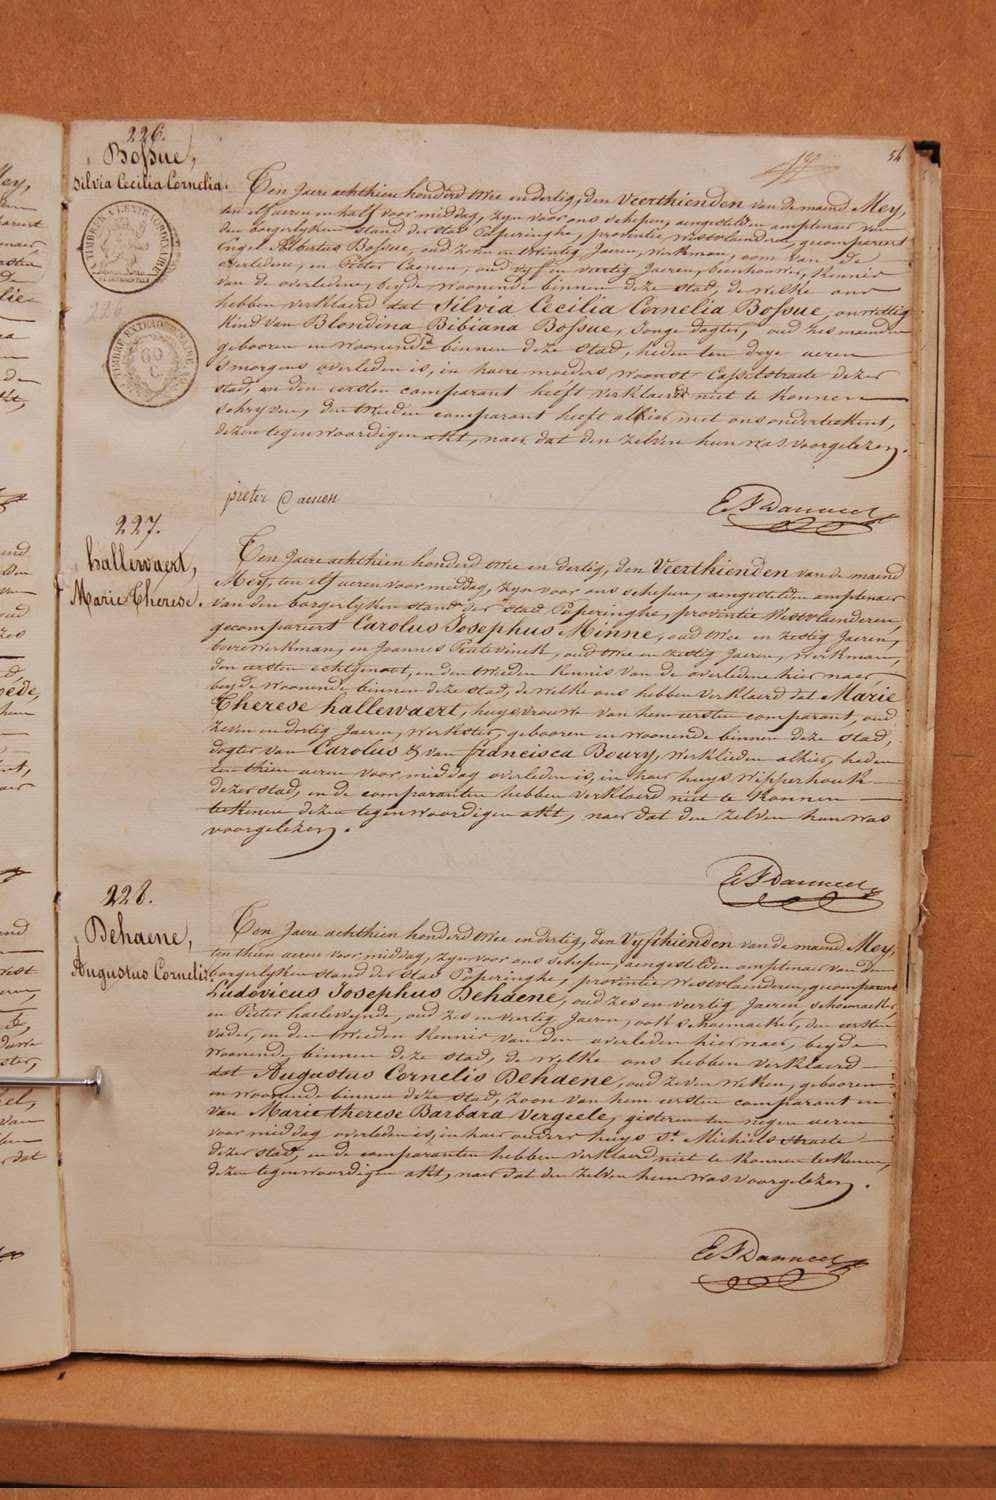 54
226.
Bossue,
Silvia Cecilia Cornelia.
TIMBRE A L'EXTRAORDINAIRE
TIMBRE EXTRAORDINAIRE
60
C.
226
Ten Jaere achthien honderd twee en dertig, den Veerthienden van de maend Mey,
ten elf aeren en half voor middag, zyn voor ons schepen, aengestelden amptenaer van
den borgerlyken stand der stad Poperinghe, provintie Westvlaenderen, gecompareert
Engel Albertus Bossue, oud zeven en twintig Jaeren, werkman, oom van de
overledene, en Pieter Caenen, oud vyf en veertig Jaeren, beenhouwer, kennis
van de overledene, beyde woonende binnen deze stad, de welke ons
hebben verklaerd dat Silvia Cecilia Cornelia Bossue, onwettig
kind van Blondina Bibiana Bossue, Jonge dogter, oud zes maenden
gebooren en woonende binnen deze stad, heden ten drye aeren
smorgens overleden is, in haere moeders woonst Casselstraete dezer
stad, en den eersten comparant heeft verklaerd niet te konnen
schryven, den tweeden comparant heeft alhier met ons onderteekent,
dezen tegenwoordigen akt, naer dat den zelven hun was voorgelezen.
pieter Caenen
227.
hallewaert,
Marie Therese.
Ten Jaere achthien honderd twee en dertig, den Veerthienden van de maend
Mey, ten elf aeren voor middag, zyn voor ons schepen, aengestelden amptenaer
van den borgerlyken stand der stad Poperinghe, provintie Westvlaenderen,
gecompareert Carolus Josephus Minne, oud twee en zestig Jaeren,
werkman, en Joannes oud twee en zestig Jaeren, werkman,
den eersten echtgenoot, en den tweeden kennis van de overledene hier naer
beyde woonende binnen deze stad, de welke ons hebben verklaerd dat Marie
Therese hallewaert, huysvrouwe van hem eersten comparant, oud
zeven en dertig Jaeren, werkster, gebooren en woonende binnen deze stad,
dogter van Carolus & van francisca Boury, werklieden alhier, heden
ten thien aeren voor middag overleden is, in haer huys Wipperhouk
dezer stad, en de comparanten hebben verklaerd niet te konnen
teekenen dezen tegenwoordigen akt, naer dat den zelven hun was
voorgelezen.
228.
Behaene,
Augustus Cornelis.
Ten Jaere achthien honderd twee en dertig, den Vyfthienden van de maend Mey,
ten thien aeren voor middag, zyn voor ons schepen, aengestelden amptenaer van den
borgerlyken stand der stad Poperinghe, provintie Westvlaenderen, gecompareert
Ludovicus Josephus Behaene, oud zes en veertig Jaeren, schoemaeker,
en Pieter haelewynde, oud zes en veertig Jaeren, ook schoemaeker, den eersten
vader, en den tweeden kennis van den overleden hier naer, beyde
woonende binnen deze stad, de welke ons hebben verklaerd
dat Augustus Cornelis Behaene, oud zeven weken, gebooren
en woonende binnen deze stad, zoon van hem eersten comparant en
van Marie therese Barbara Vergeele, gisteren ten negen aeren
voor middag overleden is, in haer ouders huys St. Michielsstraete
dezer stad, en de comparanten hebben verklaerd niet te konnen teekenen,
dezen tegenwoordigen akt, naer dat den zelven hun was voorgelezen.